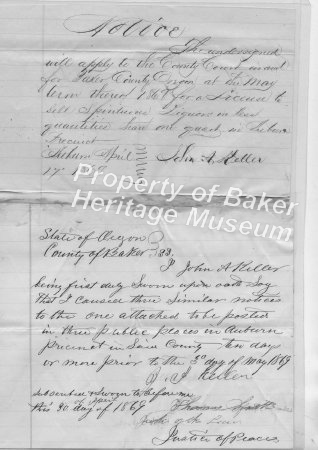 Notice
The undersigned
will apply to the County Court in and
for Baker County Oregon at the May
term thereof 1869 for a License to
sell Spirituous Liquors in less
quantities than one quart in Auburn
Precinct
Auburn April
John A Keller
17
Property of Baker
Heritage Museum
State of Oregon
County of Baker } SS.
I John A Keller
being first duly Sworn upon oath Say
that I caused three similar notices
to the one attached to be posted
in three public places in Auburn
precinct in Said County ten days
or more prior to the 3d day of May 1869
J. A Keller
Subscribed & Sworn to before me
this 30 day of April 1869
Thomas Smith
Justice of the Peace
Justice of Peace